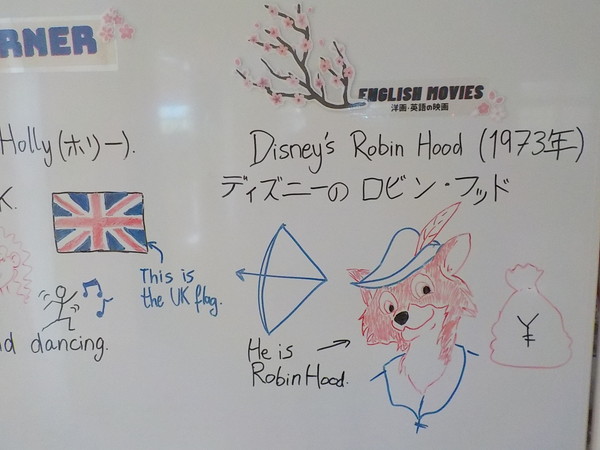 RNER
ENGLISH MOVIES
洋画・英語の映画
Holly (ホリー).
Disney's Robin Hood (1973年)
ディズニーの ロビン・フッド
K.
This is
the UK flag.
nd dancing.
He is
Robin Hood.
¥